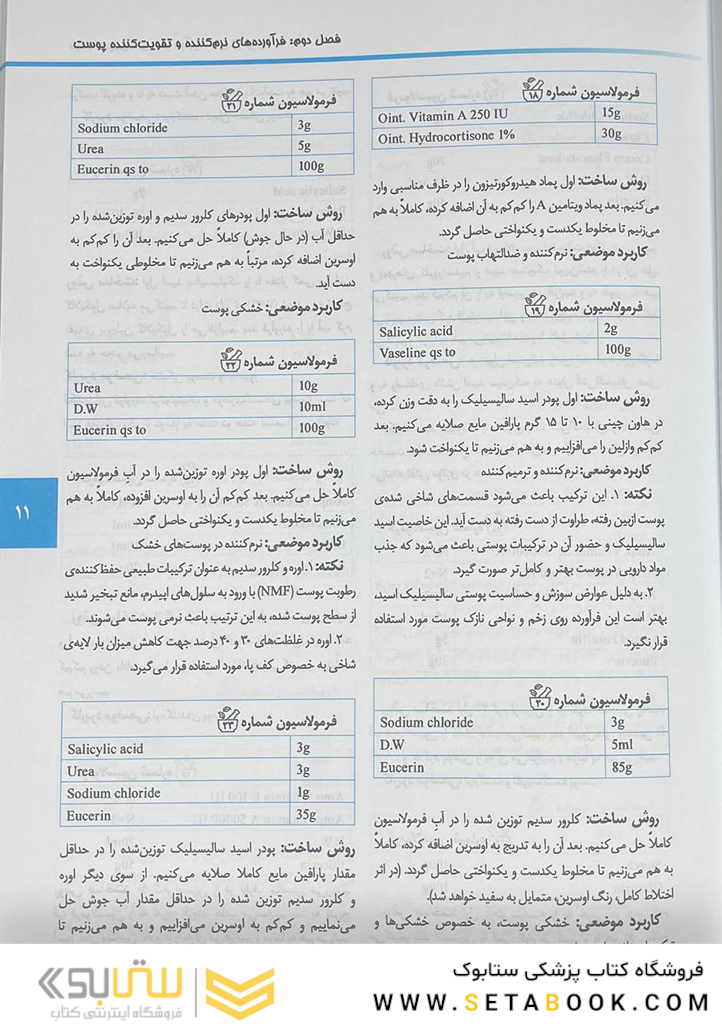 فصل دوم: فرآورده‌های نرم‌کننده و تقویت‌کننده پوست
فرمولاسیون شماره ۱۸
Oint. Vitamin A 250 IU 15g
Oint. Hydrocortisone 1% 30g
روش ساخت: اول پماد هیدروکورتیزون را در ظرف مناسبی وارد
می‌کنیم. بعد پماد ویتامین A را کم‌کم به آن اضافه کرده، کاملاً به هم
می‌زنیم تا مخلوط یکدست و یکنواختی حاصل گردد.
کاربرد موضعی: نرم‌کننده و ضدالتهاب پوست
فرمولاسیون شماره ۱۹
Salicylic acid 2g
Vaseline qs to 100g
روش ساخت: اول پودر اسید سالیسیلیک را به دقت وزن کرده،
در هاون چینی با ۱۰ تا ۱۵ گرم پارافین مایع صلایه می‌کنیم. بعد
کم‌کم وازلین را می‌افزاییم و به هم می‌زنیم تا یکنواخت شود.
کاربرد موضعی: نرم‌کننده و ترمیم‌کننده
نکته: ۱. این ترکیب باعث می‌شود قسمت‌های شاخی شده‌ی
پوست ازبین رفته، طراوت از دست رفته به دست آید. این خاصیت اسید
سالیسیلیک و حضور آن در ترکیبات پوستی باعث می‌شود که جذب
مواد دارویی در پوست بهتر و کامل‌تر صورت گیرد.
۲. به دلیل عوارض سوزش و حساسیت پوستی سالیسیلیک اسید،
بهتر است این فرآورده روی زخم و نواحی نازک پوست مورد استفاده
قرار نگیرد.
فرمولاسیون شماره ۲۰
Sodium chloride 3g
D.W 5ml
Eucerin 85g
روش ساخت: کلرور سدیم توزین شده را در آب فرمولاسیون
کاملاً حل می‌کنیم. بعد آن را به تدریج به اوسرین اضافه کرده، کاملاً
به هم می‌زنیم تا مخلوط یکدست و یکنواختی حاصل گردد. (در اثر
اختلاط کامل، رنگ اوسرین، متمایل به سفید خواهد شد).
کاربرد موضعی: خشکی پوست، به خصوص خشکی‌ها و
فرمولاسیون شماره ۲۱
Sodium chloride 3g
Urea 5g
Eucerin qs to 100g
روش ساخت: اول پودرهای کلرور سدیم و اوره توزین‌شده را در
حداقل آب (در حال جوش) کاملاً حل می‌کنیم. بعد آن را کم‌کم به
اوسرین اضافه کرده، مرتباً به هم می‌زنیم تا مخلوطی یکنواخت به
دست آید.
کاربرد موضعی: خشکی پوست
فرمولاسیون شماره ۲۲
Urea 10g
D.W 10ml
Eucerin qs to 100g
روش ساخت: اول پودر اوره توزین‌شده را در آب فرمولاسیون
کاملاً حل می‌کنیم. بعد کم‌کم آن را به اوسرین افزوده، کاملاً به هم
می‌زنیم تا مخلوط یکدست و یکنواختی حاصل گردد.
کاربرد موضعی: نرم‌کننده در پوست‌های خشک
نکته: ۱. اوره و کلرور سدیم به عنوان ترکیبات طبیعی حفظ‌کننده‌ی
رطوبت پوست (NMF) با ورود به سلول‌های اپیدرم، مانع تبخیر شدید
از سطح پوست شده، به این ترتیب باعث نرمی پوست می‌شوند.
۲. اوره در غلظت‌های ۳۰ و ۴۰ درصد جهت کاهش میزان بار لایه‌ی
شاخی به خصوص کف پا، مورد استفاده قرار می‌گیرد.
فرمولاسیون شماره ۲۳
Salicylic acid 3g
Urea 3g
Sodium chloride 1g
Eucerin 35g
روش ساخت: پودر اسید سالیسیلیک توزین‌شده را در حداقل
مقدار پارافین مایع کاملا صلایه می‌کنیم. از سوی دیگر اوره
و کلرور سدیم توزین شده را در حداقل مقدار آب جوش حل
می‌نماییم و کم‌کم به اوسرین می‌افزاییم و به هم می‌زنیم تا
۱۱
فروشگاه کتاب پزشکی ستابوک
WWW.SETABOOK.COM
ستابوک
فروشگاه اینترنتی کتاب